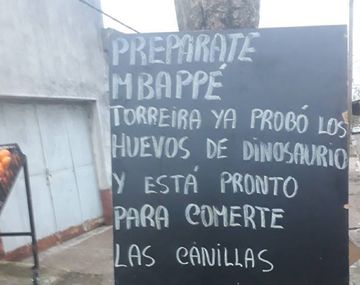 PREPARATE
MBAPPÉ
TORREIRA YA PROBÓ LOS
HUEVOS DE DINOSAURIO
Y ESTÁ PRONTO
PARA COMERTE
LAS CANILLAS